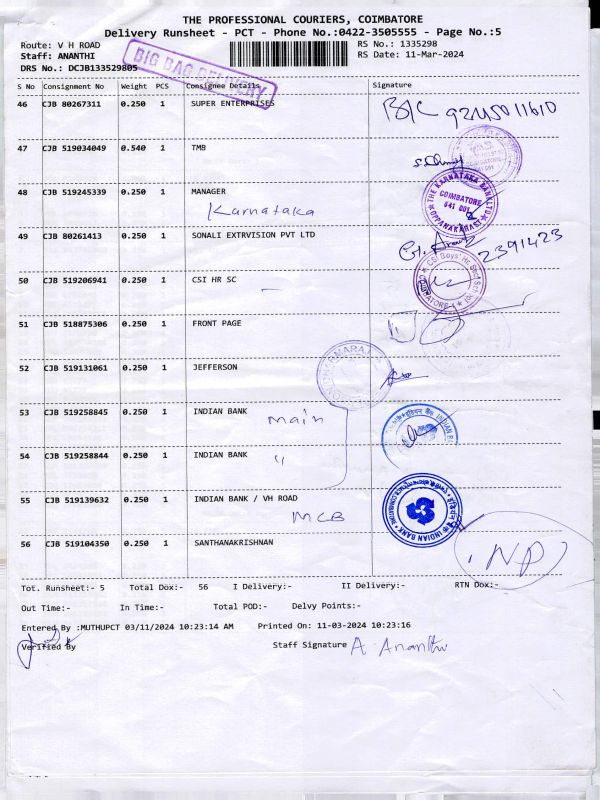 THE PROFESSIONAL COURIERS, COIMBATORE
Delivery Runsheet - PCT - Phone No.:0422-3505555 - Page No.:5
Route: V H ROAD
RS No.: 1335298
Staff: ANANTHI
RS Date: 11-Mar-2024
DRS No.: DCJB133529805
BIG BAG DELIVERY
S No Consignment No Weight PCS Consignee Details Signature
46 CJB 80267311 0.250 1 SUPER ENTERPRISES
9245011610
47 CJB 519034049 0.540 1 TMB
48 CJB 519245339 0.250 1 MANAGER
Karnataka
THE KARNATAKA BANK LTD
COIMBATORE
641 001
OPPANAKARA ST
49 CJB 80261413 0.250 1 SONALI EXTRVISION PVT LTD
2391423
50 CJB 519206941 0.250 1 CSI HR SC
CSI Boys' Hr
51 CJB 518875306 0.250 1 FRONT PAGE
52 CJB 519131061 0.250 1 JEFFERSON
53 CJB 519258845 0.250 1 INDIAN BANK
main
54 CJB 519258844 0.250 1 INDIAN BANK
"
55 CJB 519139632 0.250 1 INDIAN BANK / VH ROAD
MCB
INDIAN BANK
56 CJB 519104350 0.250 1 SANTHANAKRISHNAN
ND
Tot. Runsheet:- 5 Total Dox:- 56 I Delivery:- II Delivery:- RTN Dox:-
Out Time:- In Time:- Total POD:- Delvy Points:-
Entered By :MUTHUPCT 03/11/2024 10:23:14 AM Printed On: 11-03-2024 10:23:16
Verified By
Staff Signature A Ananthi